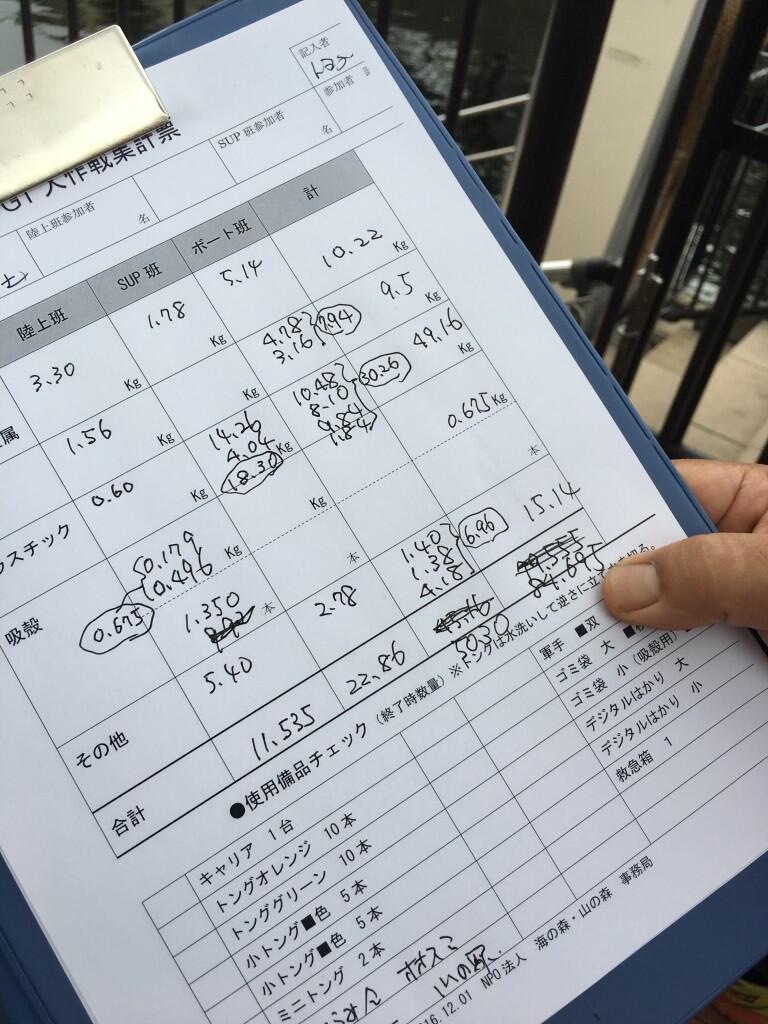 記入者
トヨケ
GI 大作戦集計票
SUP 班参加者
名
参加者
陸上班参加者
名
陸上班 SUP 班 ボート班 計
3.30 Kg 1.78 Kg 5.14 10.22 Kg
属 1.56 Kg Kg 4.78 3.16 7.94 9.5 Kg
スチック 0.60 Kg 14.26 4.04 18.30 Kg 10.48 8.10 30.26 49.16 Kg
吸殻 0.179 0.496 0.675 Kg Kg 0.675 Kg
1.350 本 本 本
その他 5.40 2.78 1.40 1.38 4.18 6.96 15.14
合計 11.535 22.86 50.30 84.695
●使用備品チェック (終了時数量) ※トングは水洗いして逆さに立て
キャリア 1台
トングオレンジ 10本
トンググリーン 10本
小トング■色 5本
小トング■色 5本
ミニトング 2本
軍手 ■双
ゴミ袋 大
ゴミ袋 小 (吸殻用)
デジタルはかり 大
デジタルはかり 小
救急箱 1
16.12.01 NPO法人 海の森・山の森 事務局